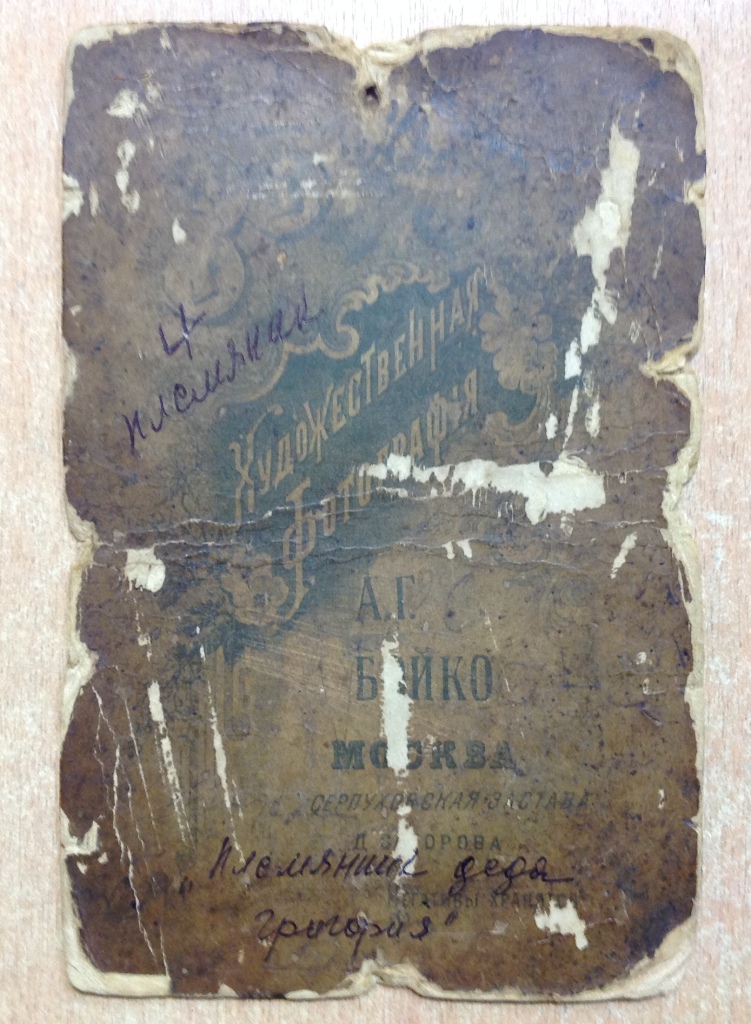 4
племянник
ХУДОЖЕСТВЕННАЯ
ФОТОГРАФІЯ
А.Г.
БОЙКО
МОСКВА
СЕРПУХОВСКАЯ ЗАСТАВА
Д.
НЕГАТИВЫ ХРАНЯТСЯ
"Племянник деда
Григория"